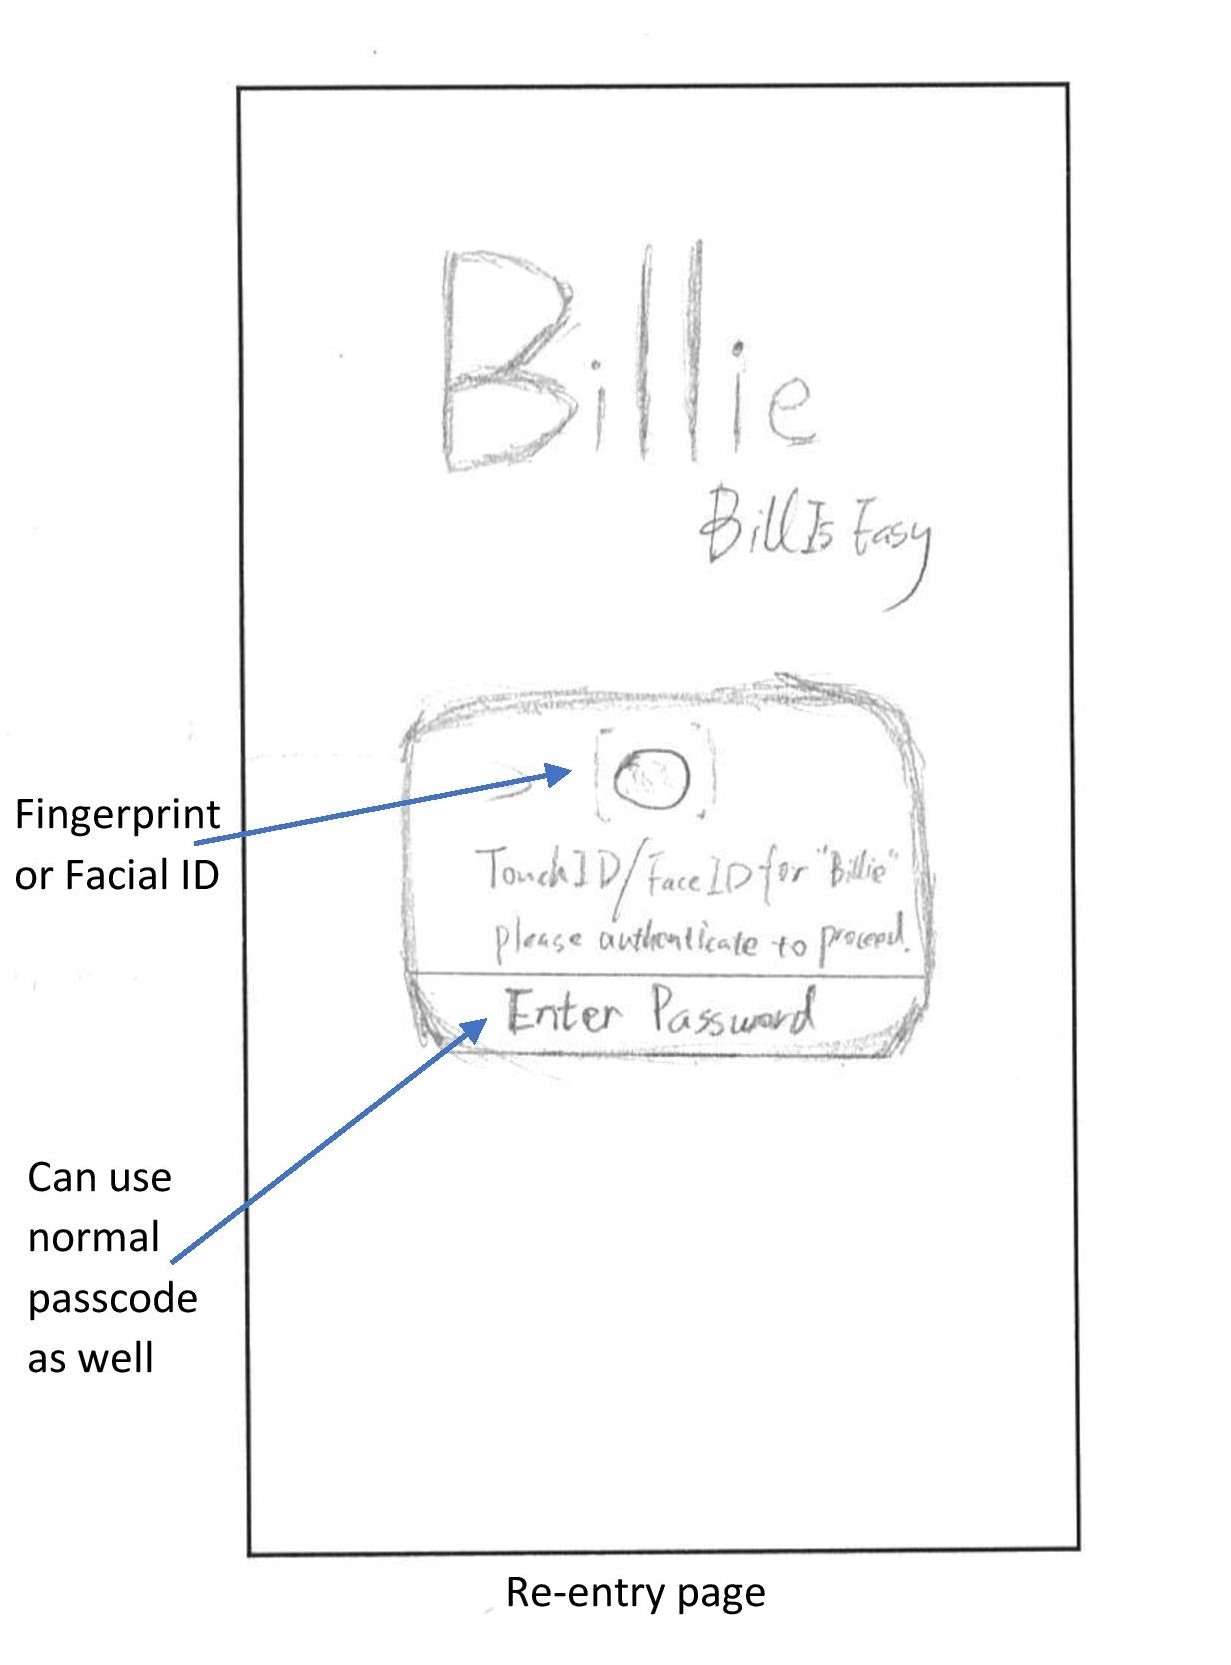 Billie
BillIs Easy
Fingerprint
or Facial ID
TouchID/FaceID for "Billie"
please authenticate to proceed.
Enter Password
Can use
normal
passcode
as well
Re-entry page